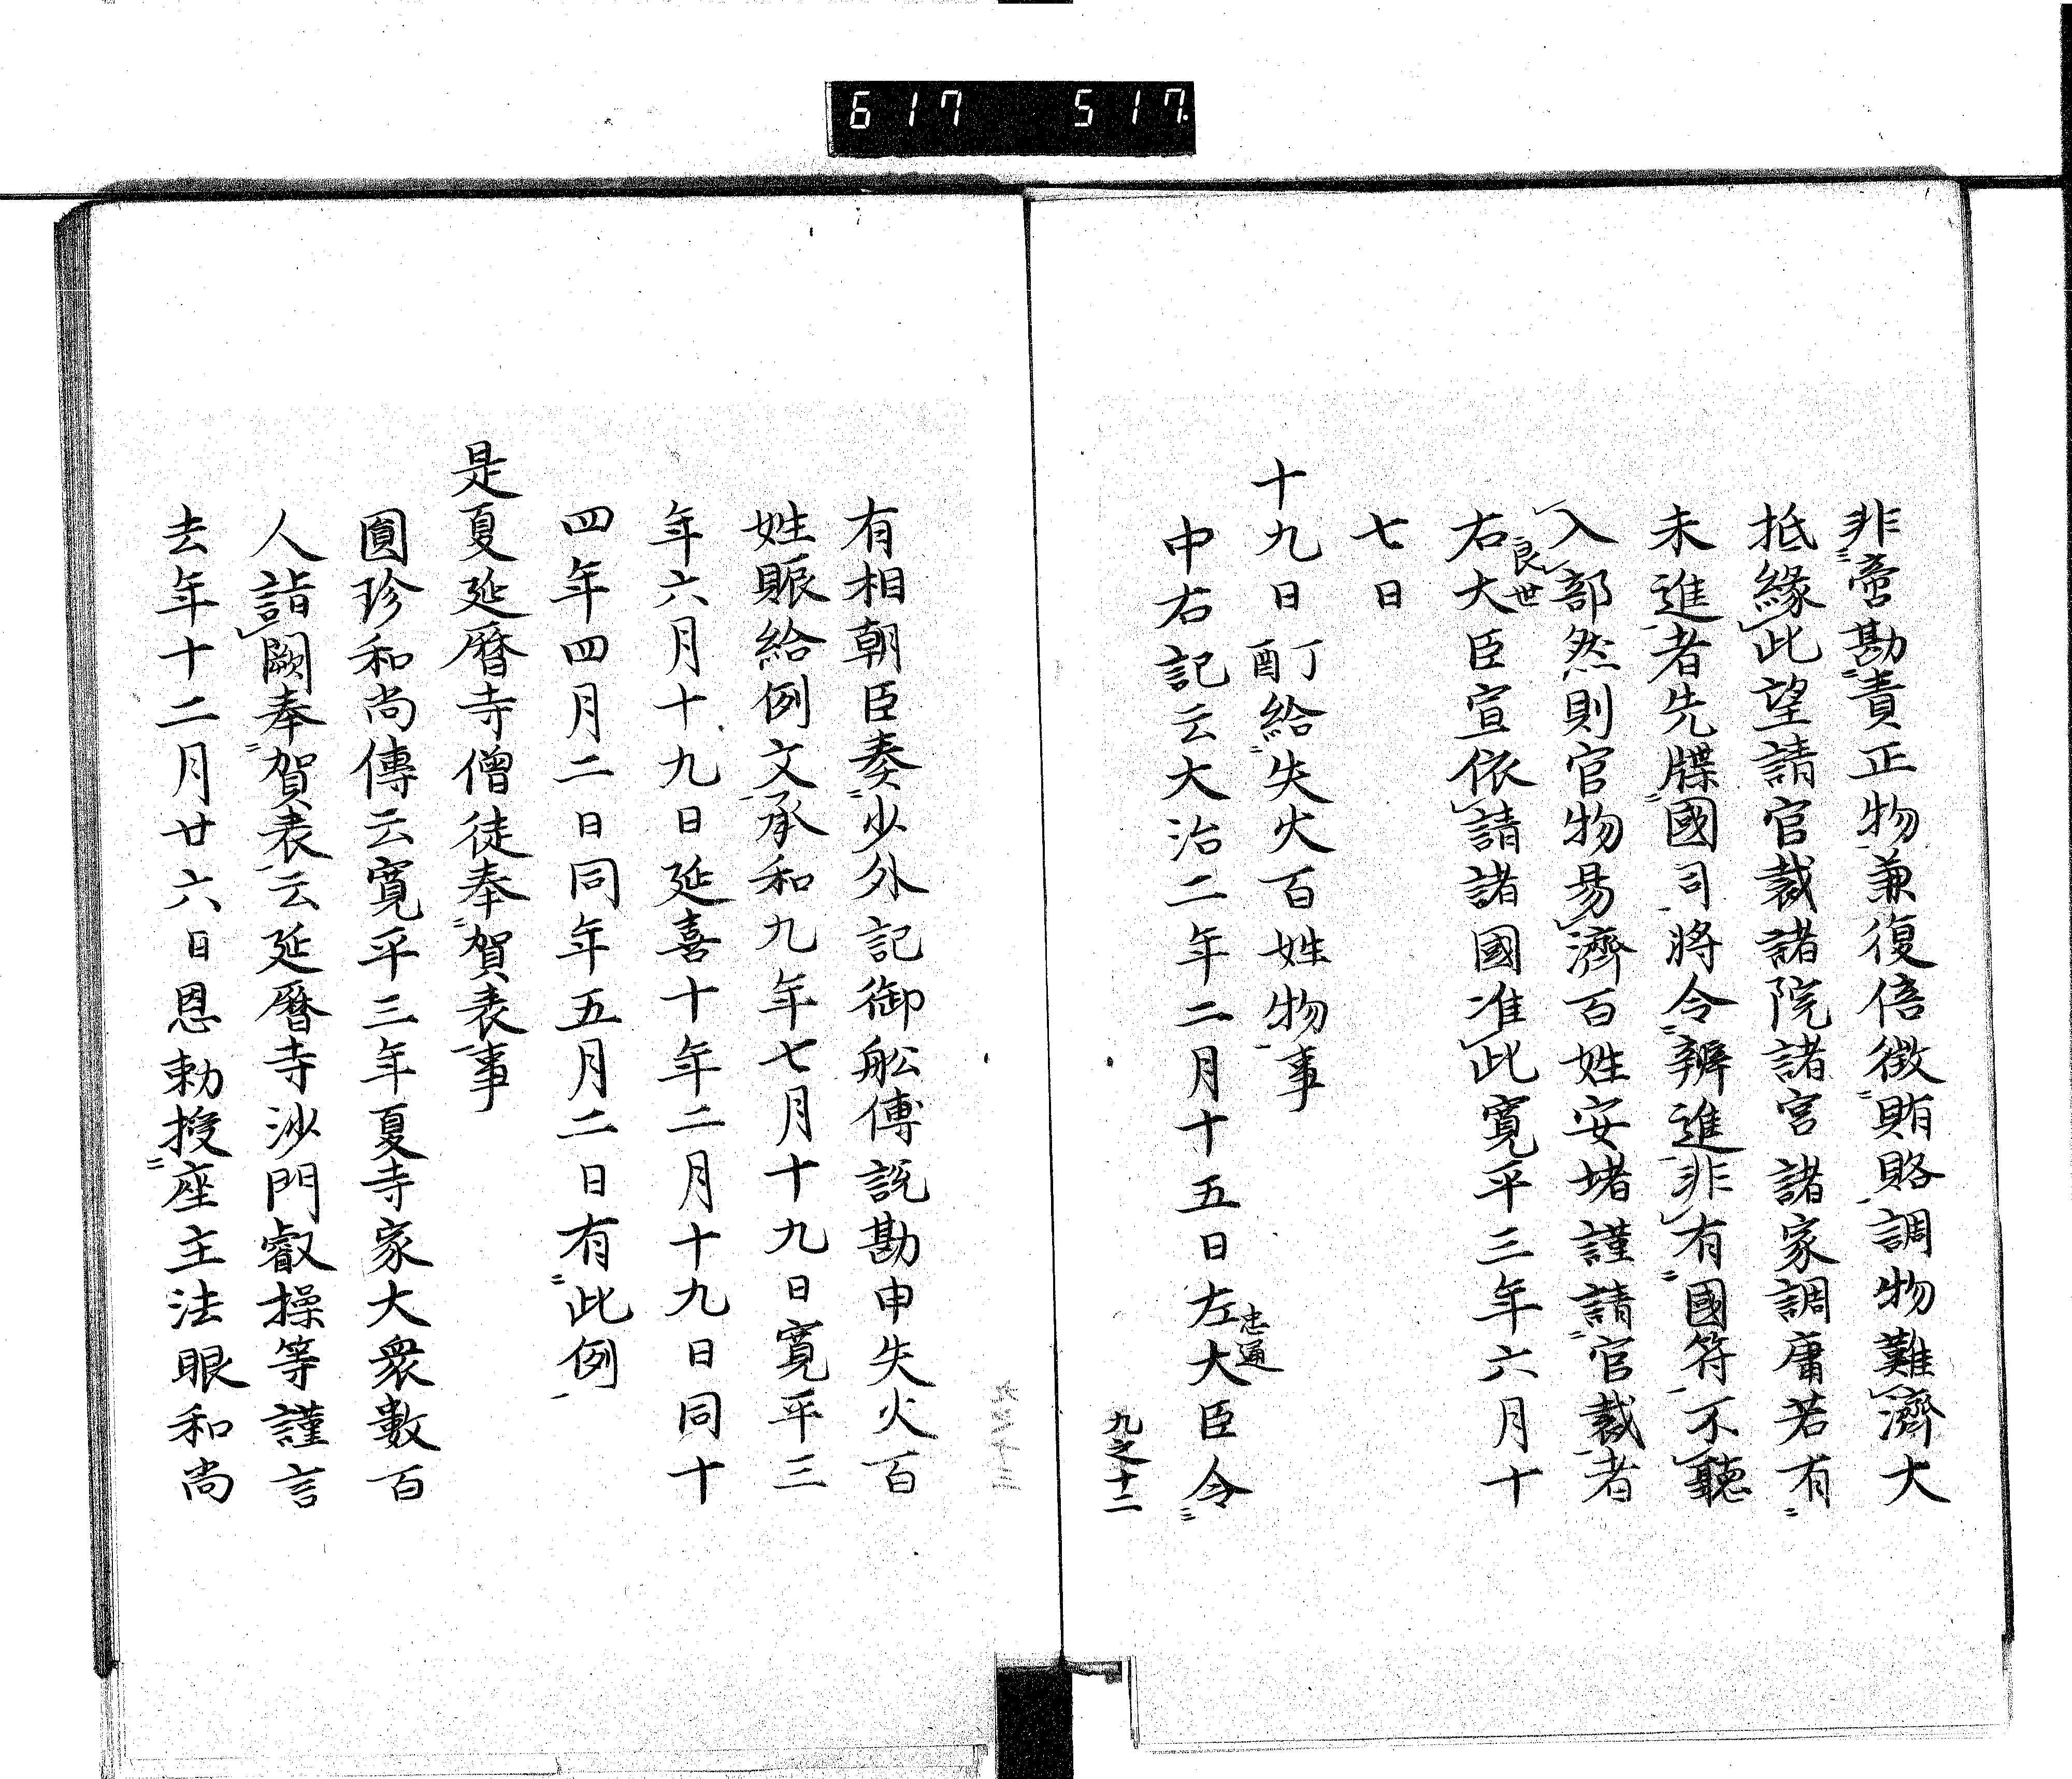 617 517.
非啻勘責正物兼復倍徴賄賂調物難濟大
抵緣此望請官裁諸院諸宮諸家調庸若有
未進者先牒國司將令辨進非有國符不聽
入部然則官物易濟百姓安堵謹請官裁者
右大臣宣依請諸國准此寬平三年六月十
良世
七日
十九日酊給失火百姓物事
中右記云大治二年二月十五日左大臣令
忠通
九之十二
有相朝臣奏少外記御舩傅説勘申失火百
姓賑給例文承和九年七月十九日寬平三
年六月十九日延喜十年二月十九日同十
四年四月二日同年五月二日有此例
是夏延曆寺僧徒奉賀表事
圓珍和尚傳云寬平三年夏寺家大衆數百
人詣闕奉賀表云延曆寺沙門叡操等謹言
去年十二月廿六日恩勅授座主法眼和尚